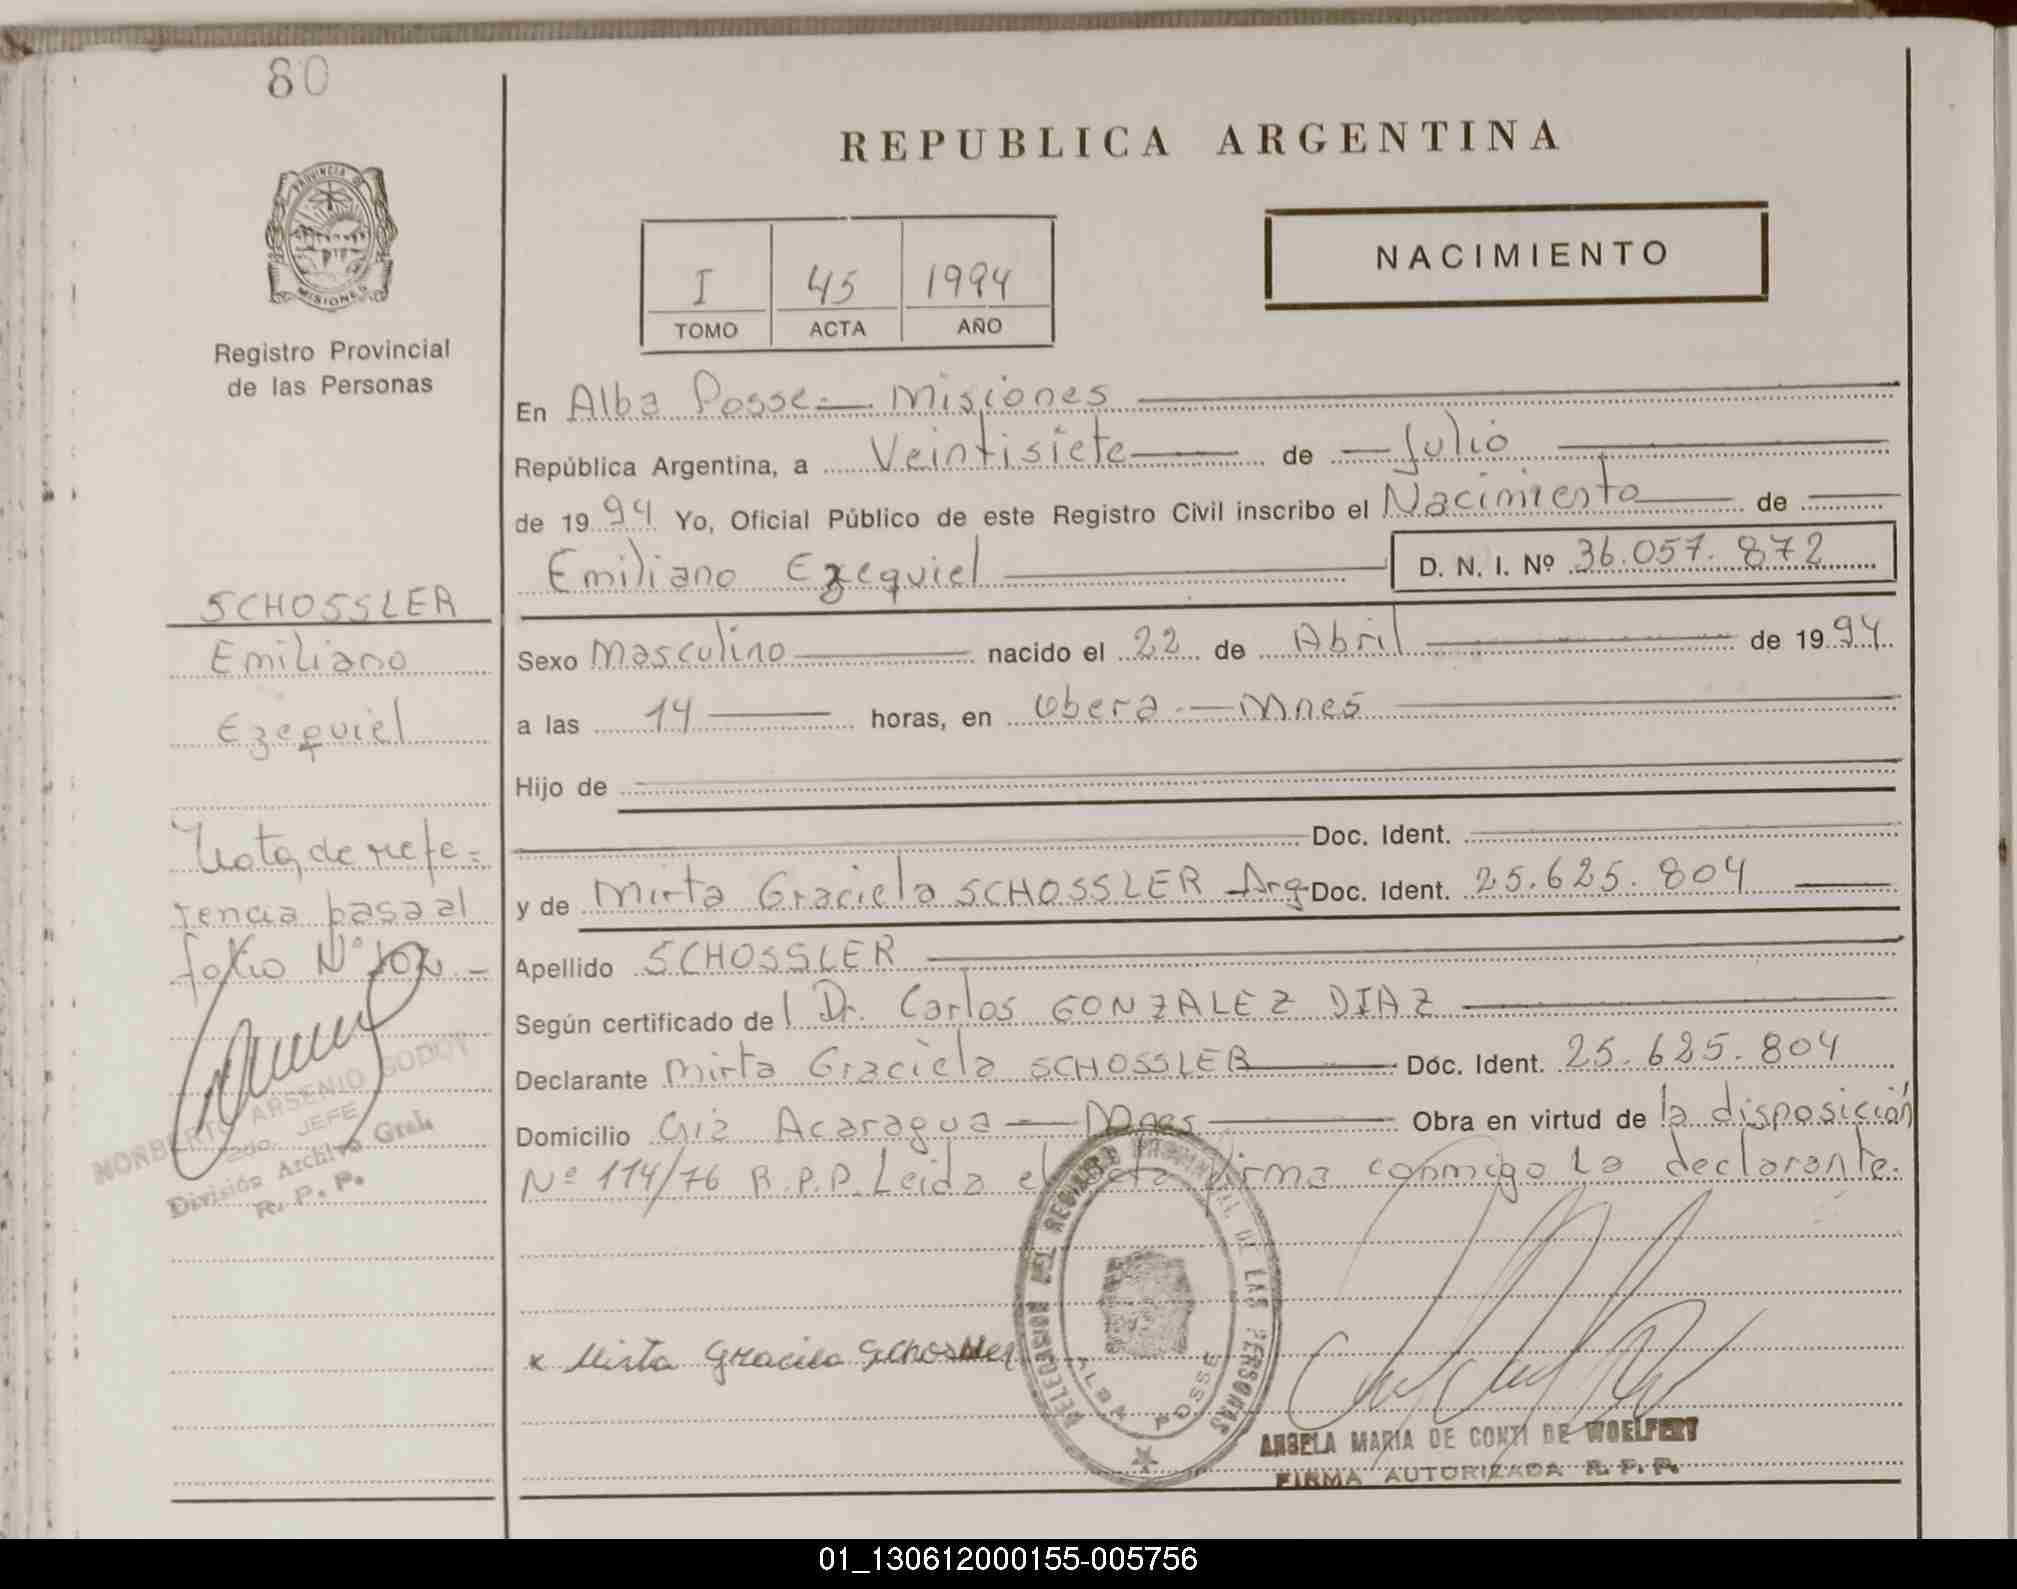 80
REPUBLICA ARGENTINA
PROVINCIA DE
MISIONES
Registro Provincial
de las Personas
I 45 1994
TOMO ACTA AÑO
NACIMIENTO
En Alba Posse - Misiones
República Argentina, a Veintisiete de Julio
de 1994 Yo, Oficial Público de este Registro Civil inscribo el Nacimiento de
Emiliano Ezequiel D. N. I. Nº 36.057.872
Sexo Masculino nacido el 22 de Abril de 1994
a las 14 horas, en Obera - Mnes
Hijo de
Doc. Ident.
y de Mirta Graciela SCHOSSLER Arg Doc. Ident. 25.625.804
Apellido SCHOSSLER
Según certificado del Dr. Carlos GONZALEZ DIAZ
Declarante Mirta Graciela SCHOSSLER Doc. Ident. 25.625.804
Domicilio Gia Acaragua - Mnes Obra en virtud de la disposición
Nº 114/76 R.P.P. Leida el acta firma conmigo la declarante.
SCHOSSLER
Emiliano
Ezequiel
Nota de refe=
rencia pasa al
folio Nº
NORBERTO ARSENIO GODOY
JEFE
División Archivo Gral.
R. P. P.
x Mirta Graciela Schossler
DELEGACION DEL REGISTRO PROVINCIAL DE LAS PERSONAS
ALBA POSSE
ANGELA MARIA DE CONTI DE WOELFERT
FIRMA AUTORIZADA R. P. P.
01_130612000155-005756